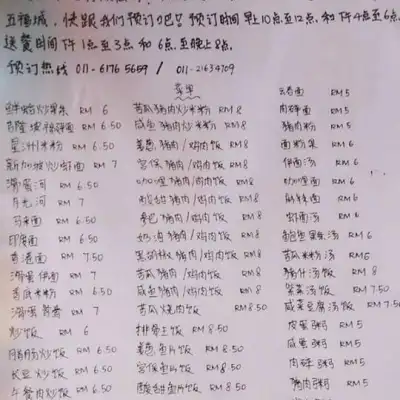 五福城，快跟我们预订吧！预订时间早上10点至12点，和下午4点至6点
送餐时间下午1点至3点和6点至晚上8点。
预订热线 011-6176 5659 / 011-21634709
菜单
鲜蛤炒粿条 RM 6
吉隆坡福建面 RM 6.50
星洲米粉 RM 6.50
新加坡炒虾面 RM 7
滑蛋河 RM 6.50
月光河 RM 7
马来面 RM 6.50
印度面 RM 6.50
香港面 RM 7.50
滑蛋伊面 RM 7
苦瓜米粉 RM 6.50
滑蛋鸳鸯 RM 7
炒饭 RM 6
腊肠炒饭 RM 6.50
长豆炒饭 RM 6.50
午餐肉炒饭 RM 6.50
苦瓜猪肉炒米粉 RM 8
咸鱼猪肉炒米粉 RM 8
姜葱猪肉/鸡肉饭 RM 8
宫保猪肉/鸡肉饭 RM 8
咖哩猪肉/鸡肉饭 RM 8
酸甜猪肉/鸡肉饭 RM 8
奶油猪肉/鸡肉饭 RM 8
黑胡椒猪肉/鸡肉饭 RM 8
苦瓜猪肉/鸡肉饭 RM 8
咸鱼猪肉/鸡肉饭 RM 8
苦瓜烧肉饭 RM 8.50
排骨王饭 RM 8.50
姜葱鱼片饭 RM 8.50
宫保鱼片饭 RM 8.50
酸甜鱼片饭 RM 8.50
面 RM 5
肉碎面 RM 5
猪肉粉 RM 5
面粉粿 RM 5
伊面汤 RM 6
咖哩面 RM 6
麻辣面 RM 6
虾面汤 RM 6
粿条汤 RM 6
苦瓜米粉汤 RM 6
猪什汤饭 RM 8
紫菜汤饭 RM 7.50
咸菜豆腐汤饭 RM 7.50
皮蛋粥 RM 5
咸蛋粥 RM 5
肉碎粥 RM 5
猪肉粥 RM 5